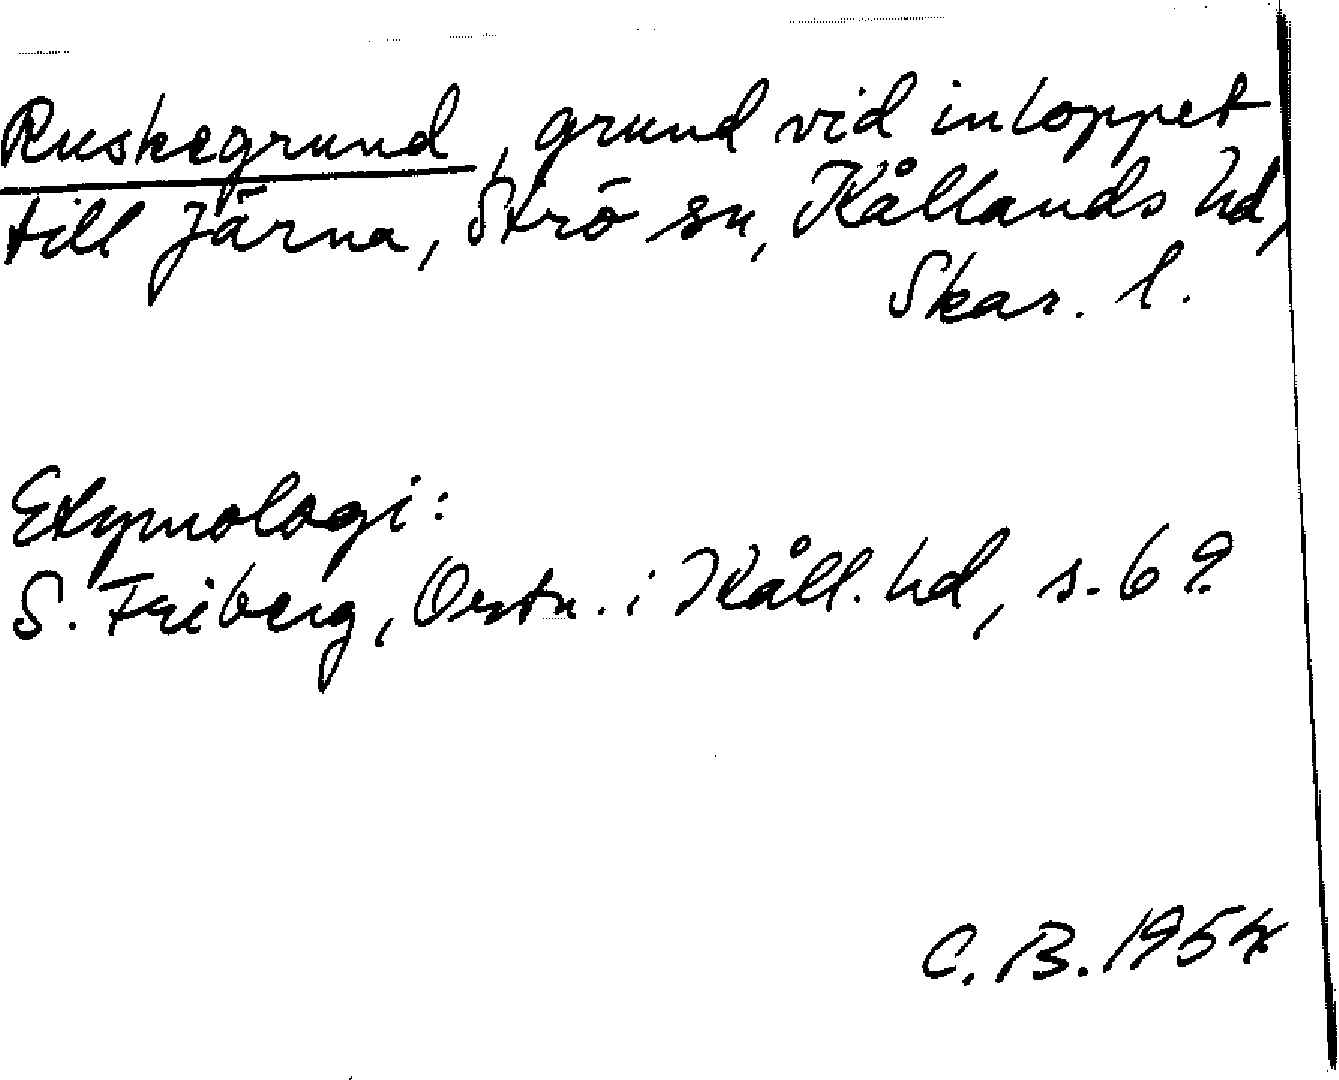 Ruskegrund, grund vid inloppet
till Järna, Strö sn, Kållands hd,
Skar. l.
Etymologi:
S. Friberg, Ortn. i Kåll. hd, s. 69.
C. B. 1954